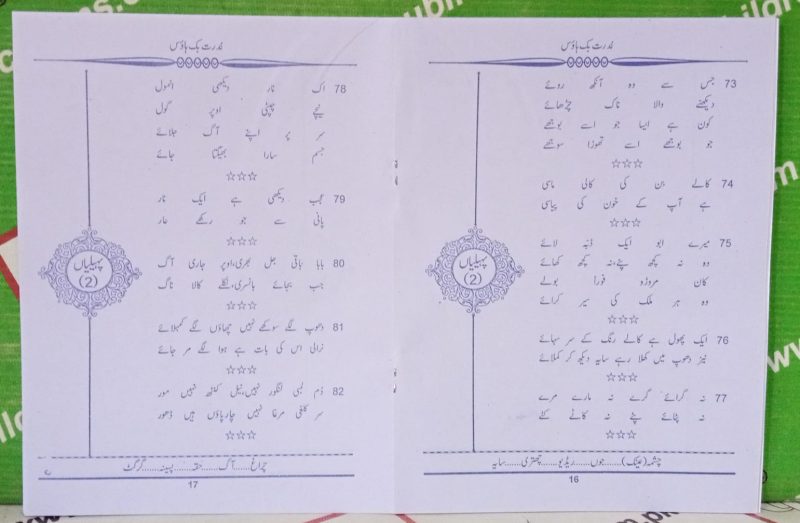 ندرت بک ہاؤس
73 جس سے وہ آنکھ روئے
دیکھنے والا ناک چڑھائے
کون ہے ایسا جو اسے بوجھے
جو بوجھے اسے تھوڑا سوجھے
☆☆☆
74 کالے بن کی کالی ماسی
ہے آپ کے خون کی پیاسی
☆☆☆
75 میرے ابو ایک ڈبہ لائے
وہ نہ کچھ پئے، نہ کچھ کھائے
کان مروڑو فوراً بولے
وہ ہر ملک کی سیر کرائے
☆☆☆
76 ایک پھول ہے کالے رنگ کے سر سہائے
تیز دھوپ میں کھلا رہے سایہ دیکھ کر کملائے
☆☆☆
77 نہ گرائے گرے نہ مارے مرے
نہ پٹائے پٹے نہ کاٹے کٹے
☆☆☆
پہیلیاں
(2)
چشمہ (عینک)......جوں......ریڈیو......چھتری......سایہ
16
ندرت بک ہاؤس
78 اک نار دیکھی انمول
نیچے چپٹی اوپر گول
سر پر اپنے آگ جلائے
جسم سارا بھیگتا جائے
☆☆☆
79 عجب دیکھی ہے ایک نار
پانی سے جو رکھے عار
☆☆☆
80 بابا باقی جل بھری، اوپر جاری آگ
جب بجائے بانسری، نکلے کالا ناگ
☆☆☆
81 دھوپ لگے سوکھے نہیں چھاؤں لگے کمہلائے
نرالی اس کی بات ہے ہوا لگے مر جائے
☆☆☆
82 دُم لمبی لنگور نہیں، نیل کنٹھ نہیں مور
سر کلغی مرغا نہیں چار پاؤں ہیں ڈھور
☆☆☆
پہیلیاں
(2)
چراغ......آگ......حقہ......پسینہ......گرگٹ
17